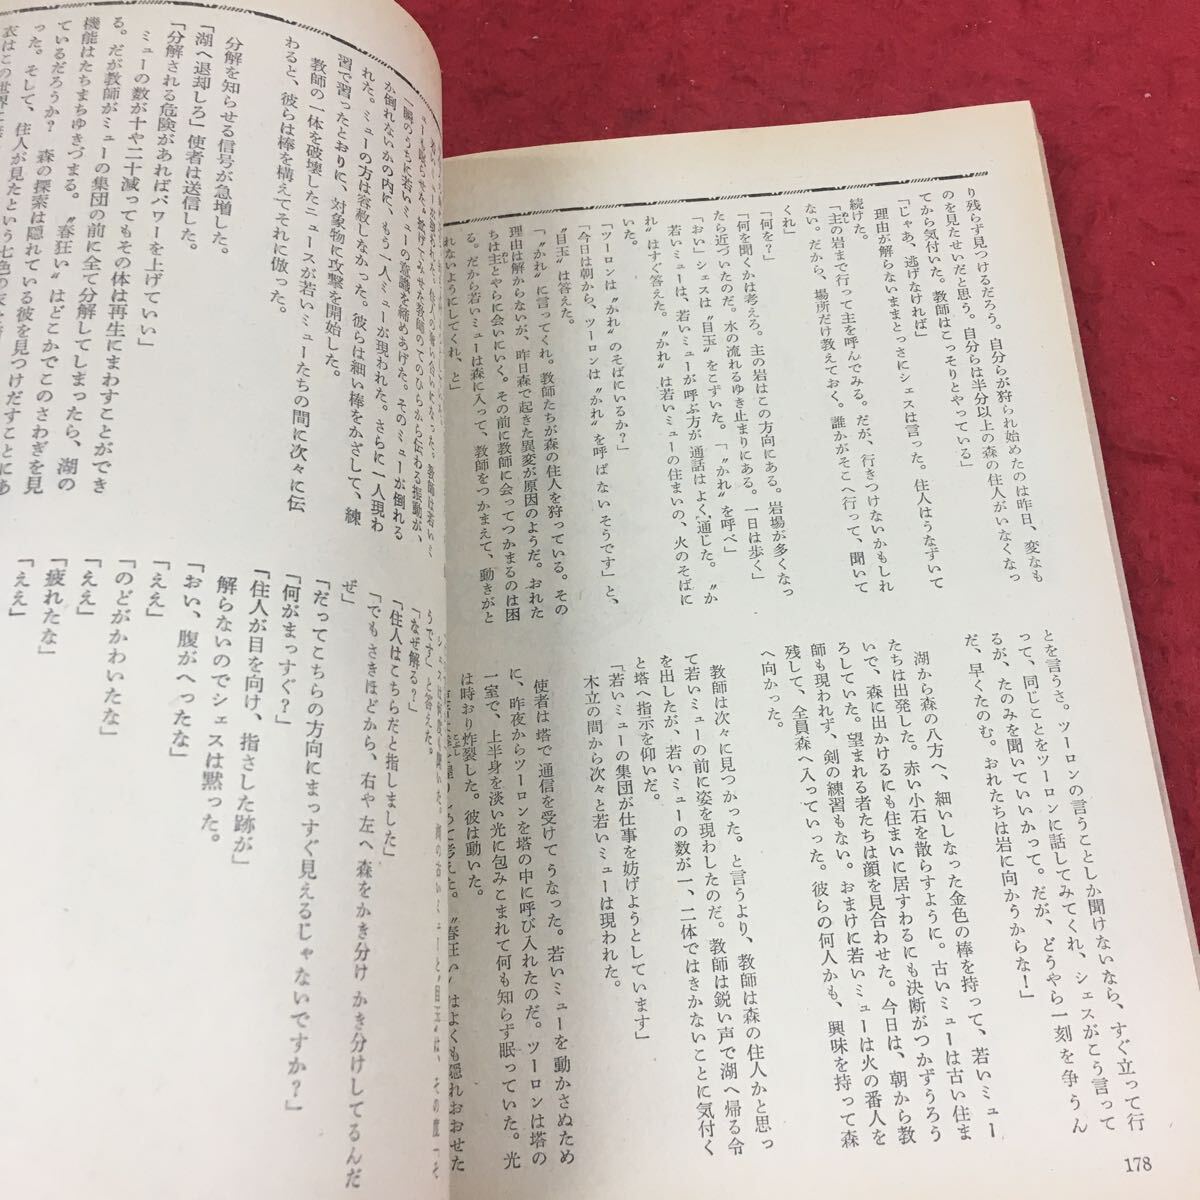 り残らず見つけるだろう。自分らが狩られ始めたのは昨日、変なも
のを見たせいだと思う。自分らは半分以上の森の住人がいなくなっ
てから気付いた。教師はこっそりとやっている」
「じゃあ、逃げなければ」
理由が解らないままとっさにシェスは言った。住人はうなずいて
続けた。
「主の岩まで行って主を呼んでみる。だが、行きつけないかもしれ
ない。だから、場所だけ教えておく。誰かがそこへ行って、聞いて
くれ」
「何を?」
「何を聞くかは考えろ。主の岩はこの方向にある。岩場が多くなっ
たら近づいたのだ。水の流れるゆき止まりにある。一日は歩く」
「おい」シェスは〝目玉〟をこずいた。「〝かれ〟を呼べ」
若いミューは、若いミューが呼ぶ方が通話はよく通じた。〝か
れ〟はすぐ答えた。〝かれ〟は若いミューの住まいの、火のそばに
いた。
「ツーロンは〝かれ〟のそばにいるか?」
「今日は朝から、ツーロンは〝かれ〟を呼ばないそうです」と、
〝目玉〟は答えた。
「〝かれ〟に言ってくれ。教師たちが森の住人を狩っている。その
理由は解らないが、昨日森で起きた異変が原因のようだ。おれた
ちは主とやらに会いにいく。その前に教師に会ってつかまるのは困
る。だから若いミューは森に入って、教師をつかまえて、動きがと
れないようにしてくれ、と」
とを言うさ。ツーロンの言うことしか聞けないなら、すぐ立って行
って、同じことをツーロンに話してみてくれ、シェスがこう言って
るが、たのみを聞いていいかって。だが、どうやら一刻を争うん
だ、早くたのむ。おれたちは岩に向かうからな!」
湖から森の八方へ、細いしなった金色の棒を持って、若いミュー
たちは出発した。赤い小石を散らすように。古いミューは古い住ま
いで、森に出かけるにも住まいに居すわるにも決断がつかずうろう
ろしていた。望まれる者たちは顔を見合わせた。今日は、朝から教
師も現われず、剣の練習もない。おまけに若いミューは火の番人を
残して、全員森へ入っていった。彼らの何人かも、興味を持って森
へ向かった。
教師は次々に見つかった。と言うより、教師は森の住人かと思っ
て若いミューの前に姿を現わしたのだ。教師は鋭い声で湖へ帰る令
を出したが、若いミューの数が一、二体ではきかないことに気付く
と塔へ指示を仰いだ。
「若いミューの集団が仕事を妨げようとしています」
木立の間から次々と若いミューは現われた。
使者は塔で通信を受けてうなった。若いミューを動かさぬため
に、昨夜からツーロンを塔の中に呼び入れたのだ。ツーロンは塔の
一室で、上半身を淡い光に包みこまれて何も知らず眠っていた。光
は時おり炸裂した。彼は動いた。
〝春狂い〟はよくも隠れおおせた
178
一瞬のうちに若いミューの意識を締めあげた。そのミューが倒れる
か倒れないかの内に、もう一人ミューが現われた。さらに一人現わ
れた。ミューの方は容赦しなかった。彼らは細い棒をかざして、練
習で習ったとおりに、対象物に攻撃を開始した。
教師の一体を破壊したニュースが若いミューたちの間に次々に伝
わると、彼らは棒を構えてそれに倣った。
分解を知らせる信号が急増した。
「湖へ退却しろ」使者は送信した。
「分解される危険があればパワーを上げていい」
ミューの数が十や二十減ってもその体は再生にまわすことができ
る。だが教師がミューの集団の前に全て分解してしまったら、湖の
機能はたちまちゆきづまる。〝春狂い〟はどこかでこのさわぎを見
ているだろうか? 森の探索は隠れている彼を見つけだすことにあ
った。そして、住人が見たという七色の
衣はこの世界に
うです」と答えた。
「なぜ解る?」
「住人はこちらだと指しました」
「でもさきほどから、右や左へ森をかき分けかき分けしてるんだ
ぜ」
「だってこちらの方向にまっすぐ見えるじゃないですか?」
「何がまっすぐ?」
「住人が目を向け、指さした跡が」
解らないのでシェスは黙った。
「おい、腹がへったな」
「ええ」
「のどがかわいたな」
「ええ」
「疲れたな」
「ええ」